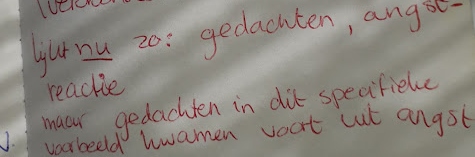 lijkt nu zo: gedachten, angst-
reactie
maar gedachten in dit specifieke
voorbeeld kwamen voort uit angst